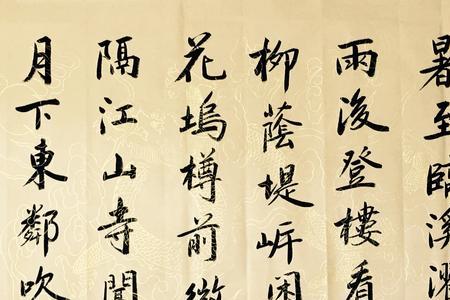 暑至臨溪濯
雨後登樓看
柳蔭堤畔閒
花塢樽前微
隔江山寺聞
月下東鄰吹